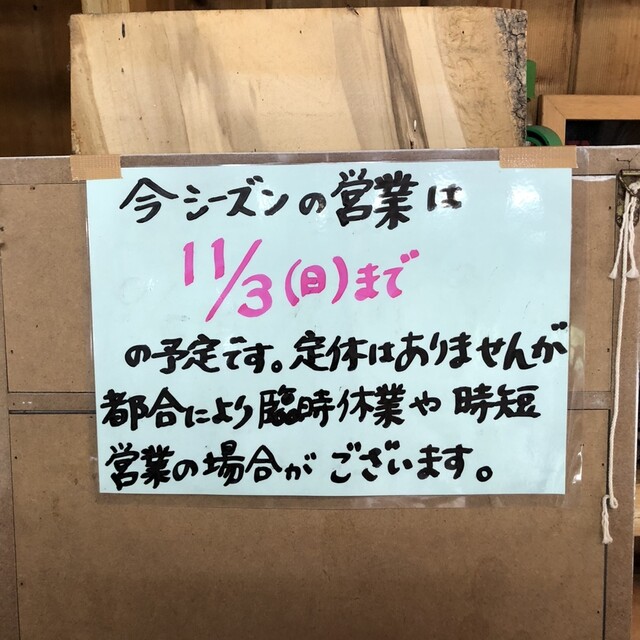 今シーズンの営業は
11/3(日)まで
の予定です。定休はありませんが
都合により臨時休業や時短
営業の場合がございます。